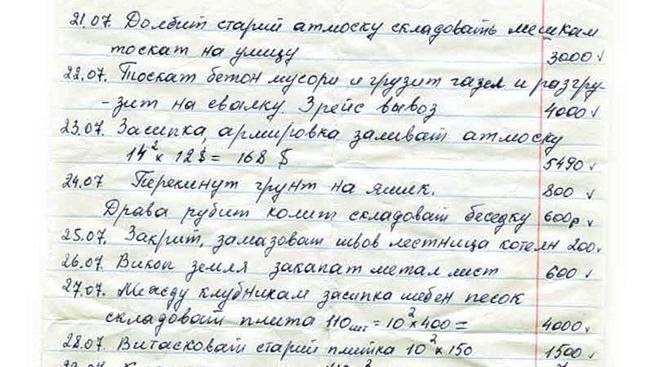 21.07. Долбит старий атмоску складовать мешкам
тоскат на улицу 3000 v
22.07. Тоскат бетон мусори и грузит газел и разгру-
-зит на свалку. 3 рейс вывоз 4000 v
23.07. Засипка, армировка заливат атмоску
14² x 12$ = 168 $ 5490 v
24.07 Перекинут грунт на ямик. 800 v
Драва рубит колит складоват беседку 600р v
25.07. Закрит, замазоват швов лестница котелн 200 v
26.07. Викоп земля закапат метал лист 600 v
27.07. Между клубникам засипка щебен песок
складоват плита 110шт = 10² x 400 = 4000 v
28.07. Витасковат старий плитка 10² x 150 1500 v